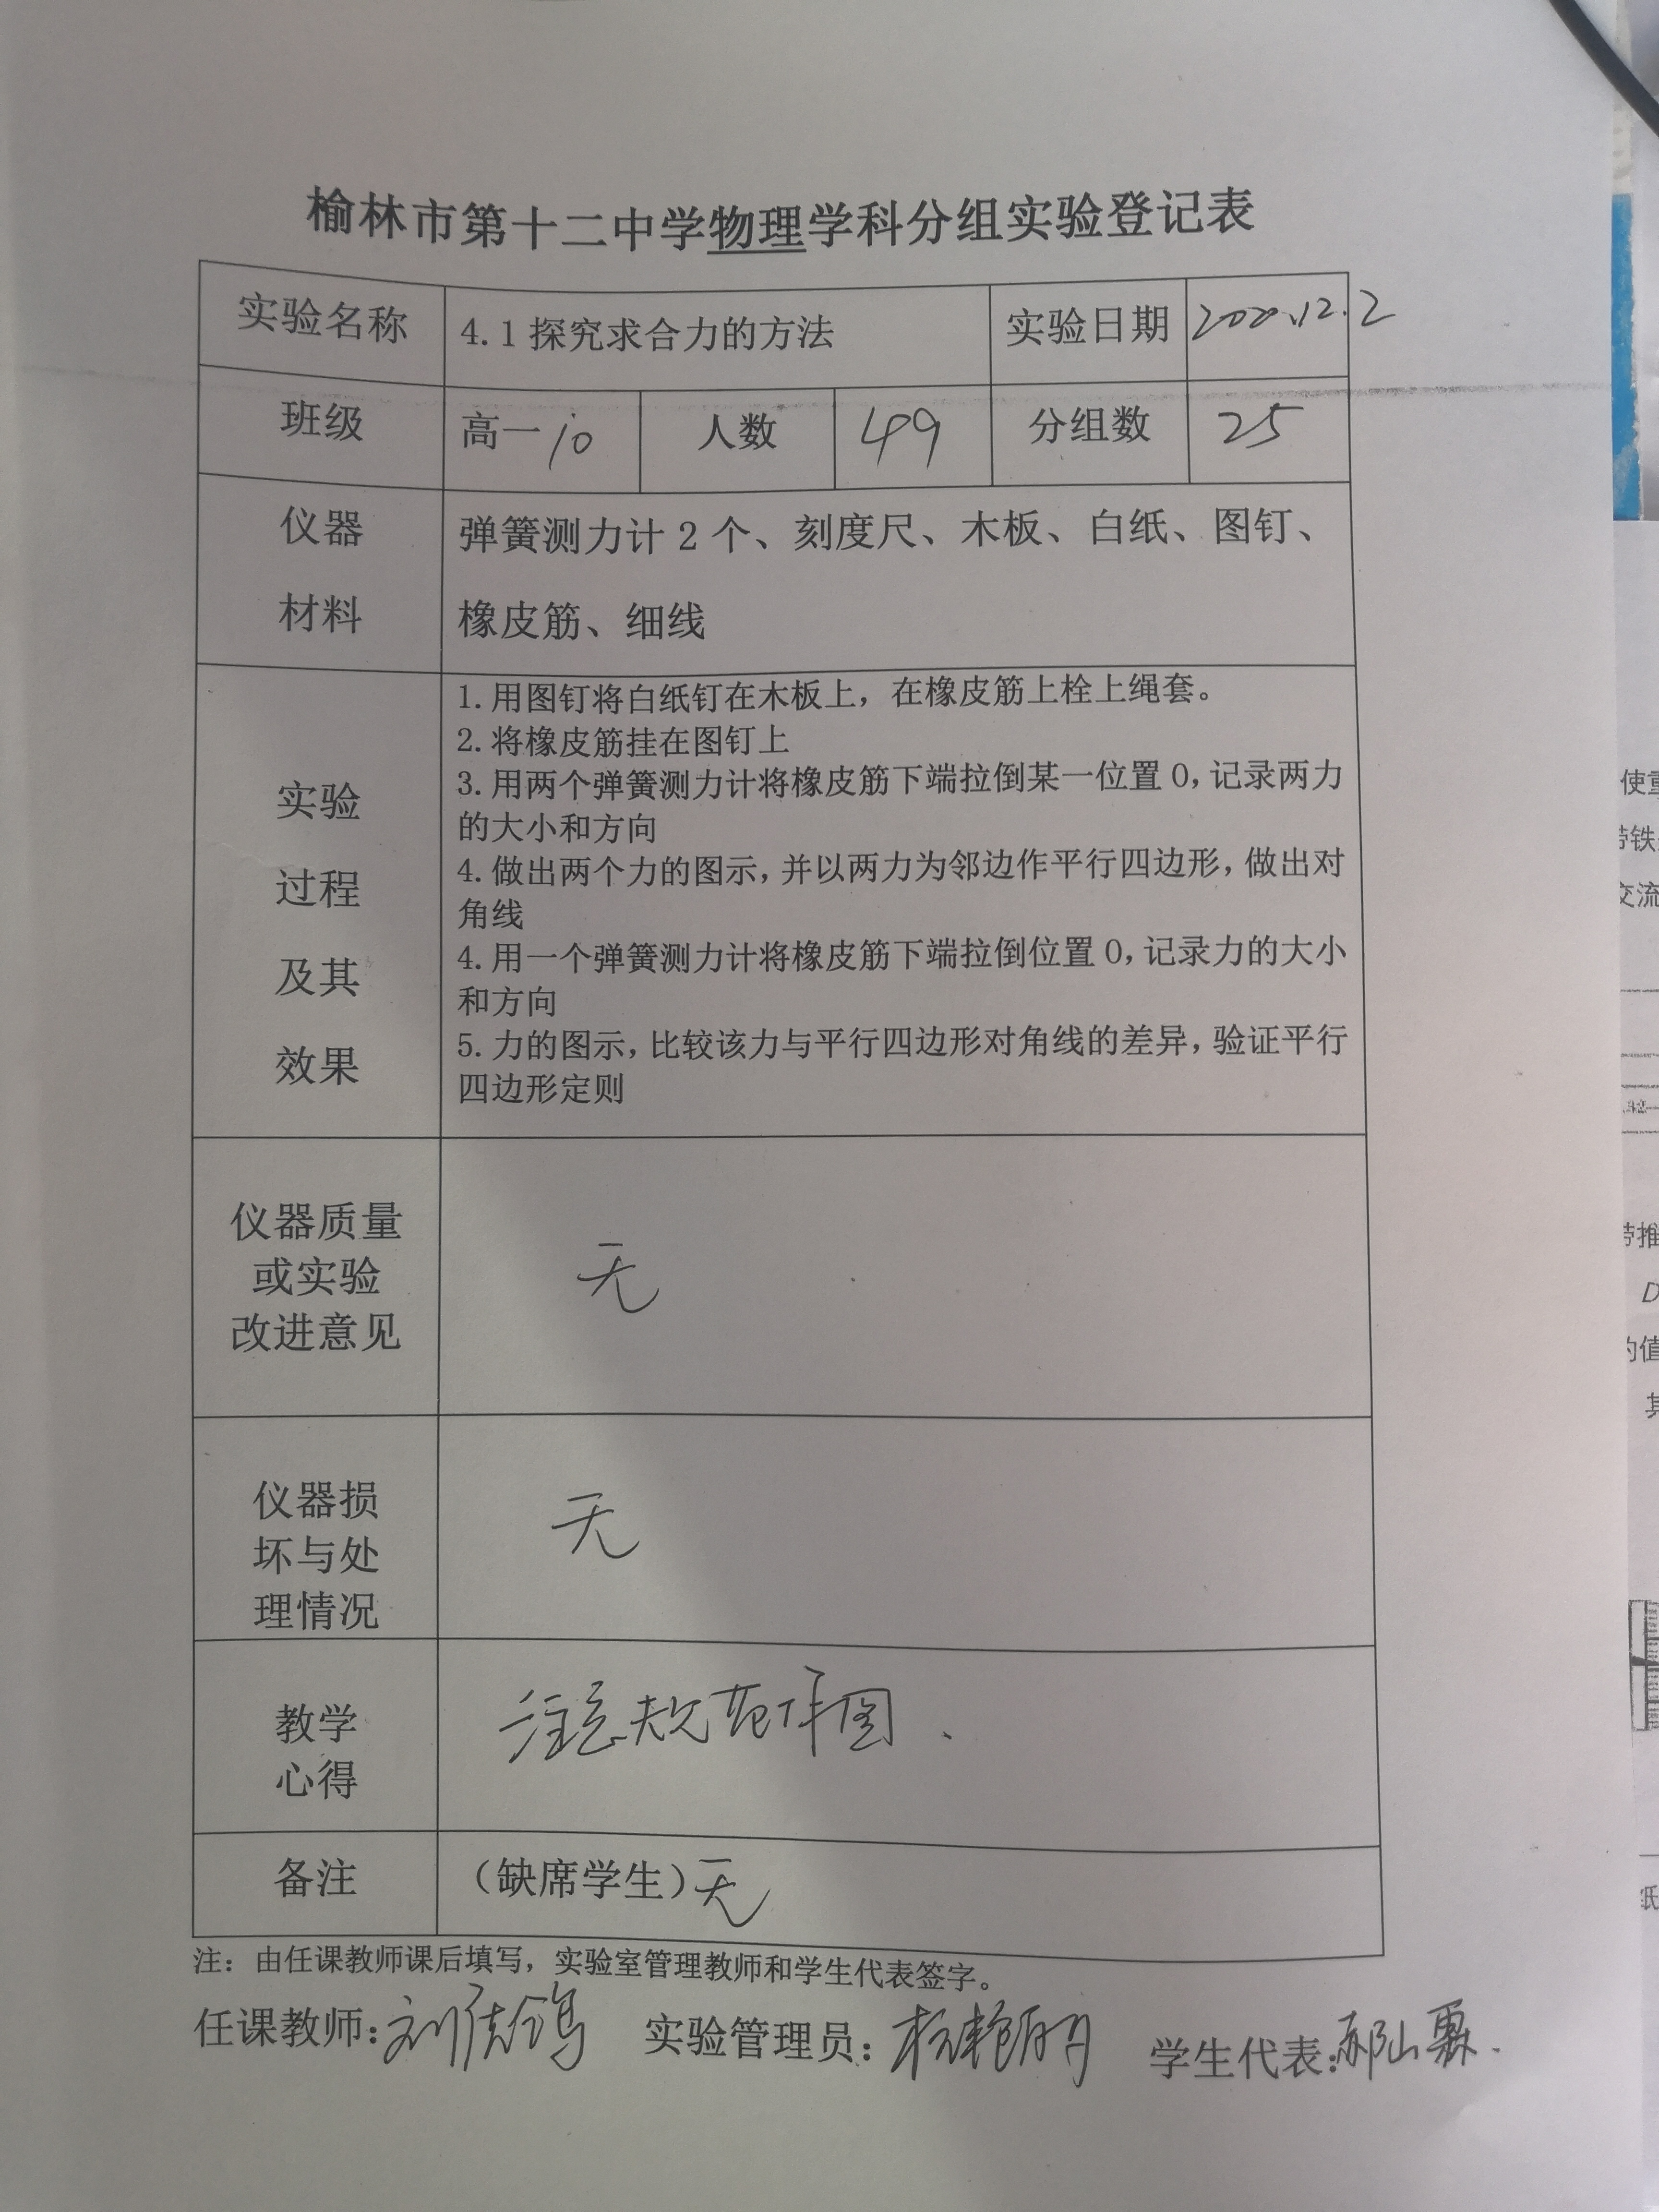 榆林市第十二中学物理学科分组实验登记表
实验名称 4.1 探究求合力的方法 实验日期 2020.12.2
班级 高一 10 人数 49 分组数 25
仪器
材料
弹簧测力计 2 个、刻度尺、木板、白纸、图钉、
橡皮筋、细线
实验
过程
及其
效果
1. 用图钉将白纸钉在木板上，在橡皮筋上栓上绳套。
2. 将橡皮筋挂在图钉上
3. 用两个弹簧测力计将橡皮筋下端拉倒某一位置 O，记录两力
的大小和方向
4. 做出两个力的图示，并以两力为邻边作平行四边形，做出对
角线
4. 用一个弹簧测力计将橡皮筋下端拉倒位置 O，记录力的大小
和方向
5. 力的图示，比较该力与平行四边形对角线的差异，验证平行
四边形定则
仪器质量
或实验
改进意见
无
仪器损
坏与处
理情况
无
教学
心得
注意规范作图.
备注 （缺席学生）无
注：由任课教师课后填写，实验室管理教师和学生代表签字。
任课教师: 刘 实验管理员: 学生代表: 郝
使
带铁
交流
带推
D
的值
其
纸